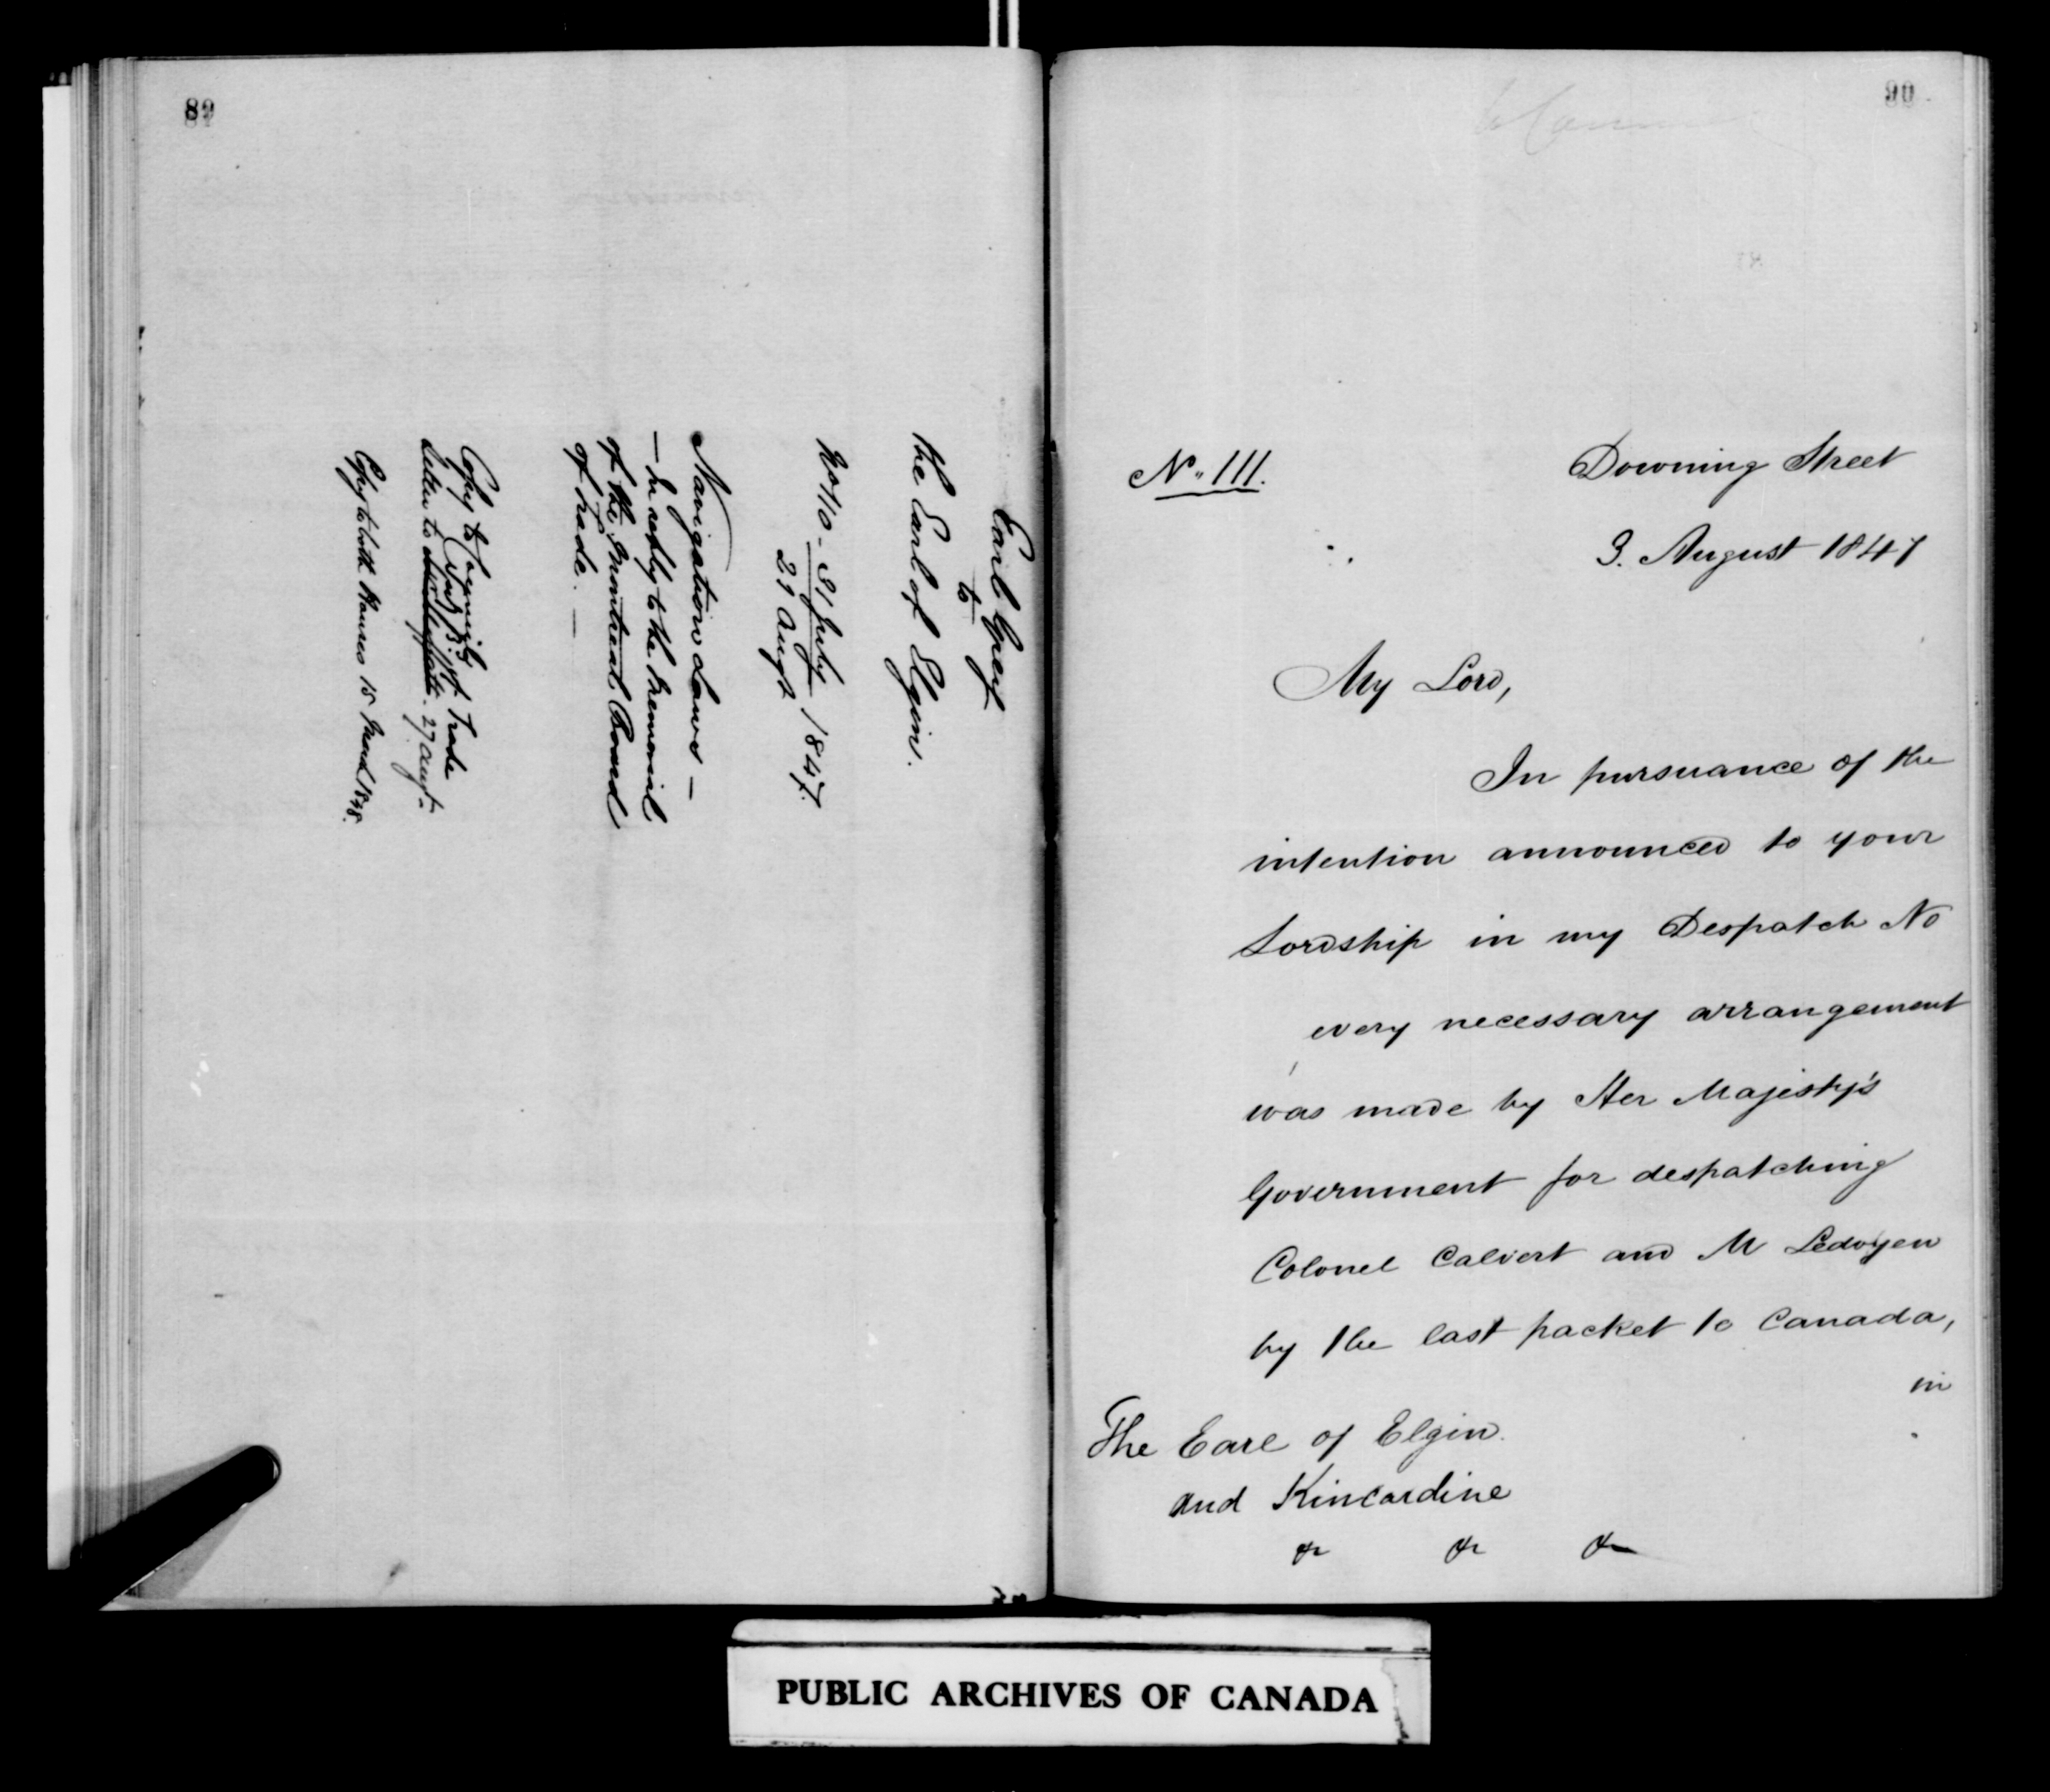 89
Earl Grey
to
the Earl of Elgin.
No 110 - 31 July 1847.
21 Augt
Navigation Laws —
— In reply to the Memorial
of the Montreal Board
of Trade. —
Copy to Comm
of Trade
Letter to 27 Augt
Copy to both Houses 15 March 1848.
90
No. 111.
Downing Street
3. August 1847
My Lord,
In pursuance of the
intention announced to your
Lordship in my Despatch No
every necessary arrangement
was made by Her Majesty's
Government for despatching
Colonel Calvert and M Ledoyen
by the last packet to Canada,
in
The Earl of Elgin.
and Kincardine
&c &c &c
PUBLIC ARCHIVES OF CANADA